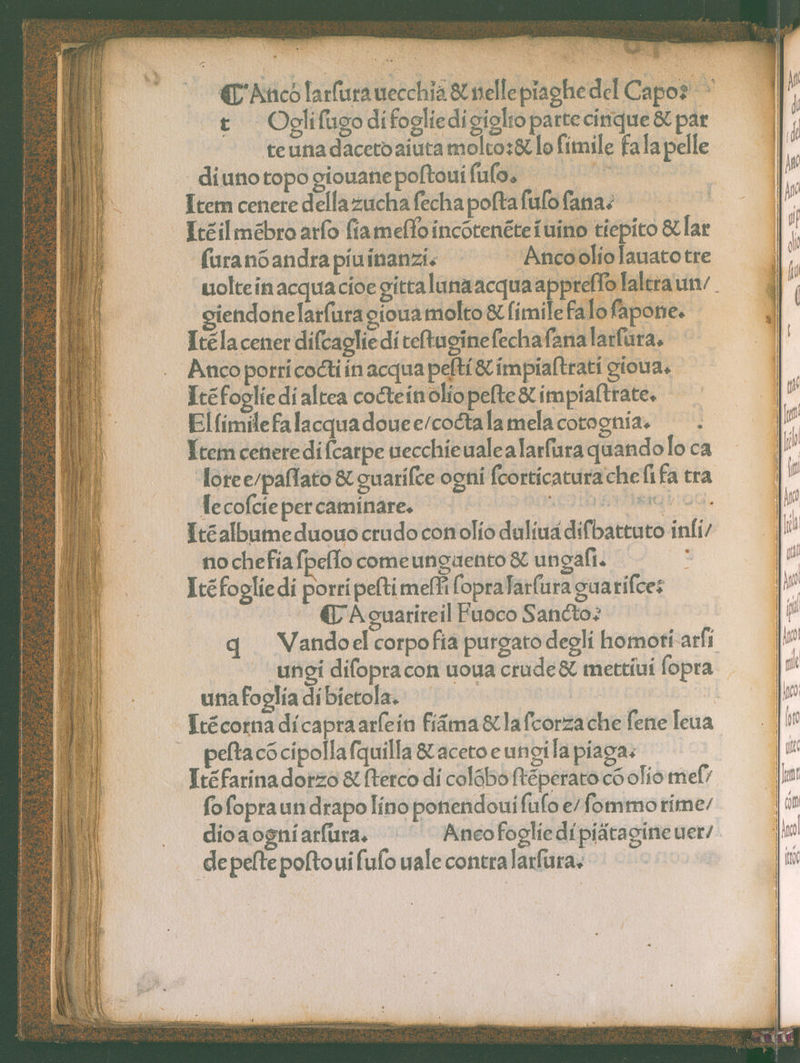 ☾ Ancó larſura uecchia & nelle piaghe del Capo:
t Ogli ſugo di foglie di giglio parte cinque & par
te una daceto aiuta molto:& lo ſimile fa la pelle
di uno topo giouane poſtoui ſuſo.
Item cenere della zucha ſecha poſta ſuſo ſana.
Ité il mébro arſo ſia meſſo incótenéte í uino tiepito & lar
ſura nó andra piu inanzi. Anco olio lauato tre
uolte in acqua cioe gitta luna acqua appreſſo laltra un/
giendone larſura gioua molto & ſimile fa lo ſapone.
Ité la cener diſcaglie di teſtugine ſecha ſana larſura.
Anco porri cocti in acqua peſti & impiaſtrati gioua.
Ité foglie di altea cocte in olio peſte & impiaſtrate.
El ſimile fa lacqua doue e/cocta la mela cotognia.
Item cenere di ſcarpe uecchie uale a larſura quando lo ca
lore e/paſſato & guariſce ogni ſcorticatura che ſi fa tra
le coſcie per caminare.
Ité albume duouo crudo con olio duliuá diſbattuto inſi/
no che ſia ſpeſſo come unguento & ungaſi.
Ité foglie di porri peſti meſſi ſopra larſura guariſce:
☾ A guarire il Fuoco Sancto:
q Vando el corpo ſia purgato degli homori arſi
ungi diſopra con uoua crude & mettiui ſopra
una foglia di bietola.
Ité corna di capra arſe in fiáma & la ſcorza che ſene leua
peſta có cipolla ſquilla & aceto e ungi la piaga.
Ité farina dorzo & ſterco di colóbo ſtéperato có olio meſ/
ſo ſopra un drapo lino ponendoui ſuſo e/ ſommo rime/
dio a ogni arſura. Anco foglie di piátagine uer/
de peſte poſtoui ſuſo uale contra larſura.